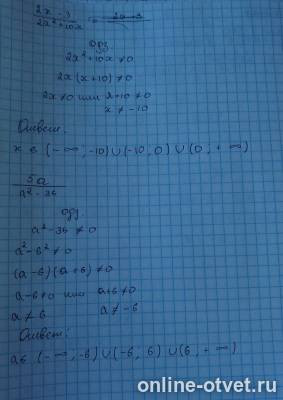 2x - 3 / 2x² + 10x
ОДЗ
2x² + 10x ≠ 0
2x (x + 10) ≠ 0
2x ≠ 0 или x + 10 ≠ 0
x ≠ -10
Ответ:
x ∈ (-∞; -10) ∪ (-10; 0) ∪ (0; +∞)
5a / a² - 36
ОДЗ
a² - 36 ≠ 0
a² - 6² ≠ 0
(a - 6)(a + 6) ≠ 0
a - 6 ≠ 0 или a + 6 ≠ 0
a ≠ 6 a ≠ -6
Ответ:
a ∈ (-∞; -6) ∪ (-6; 6) ∪ (6; +∞)
online-otvet.ru